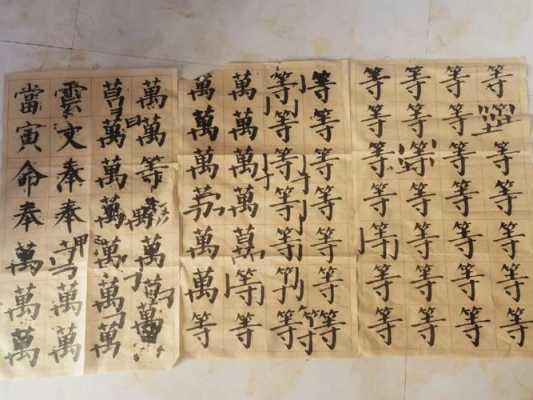 當雲萬萬萬萬等等等等等等
寅文萬萬萬萬等等等等等
命奉萬等萬萬等等等等等
奉奉萬萬等等等等等等
萬萬萬萬等等等等等等
萬萬萬萬萬等等等等等等等
萬萬萬等等等等等等等等